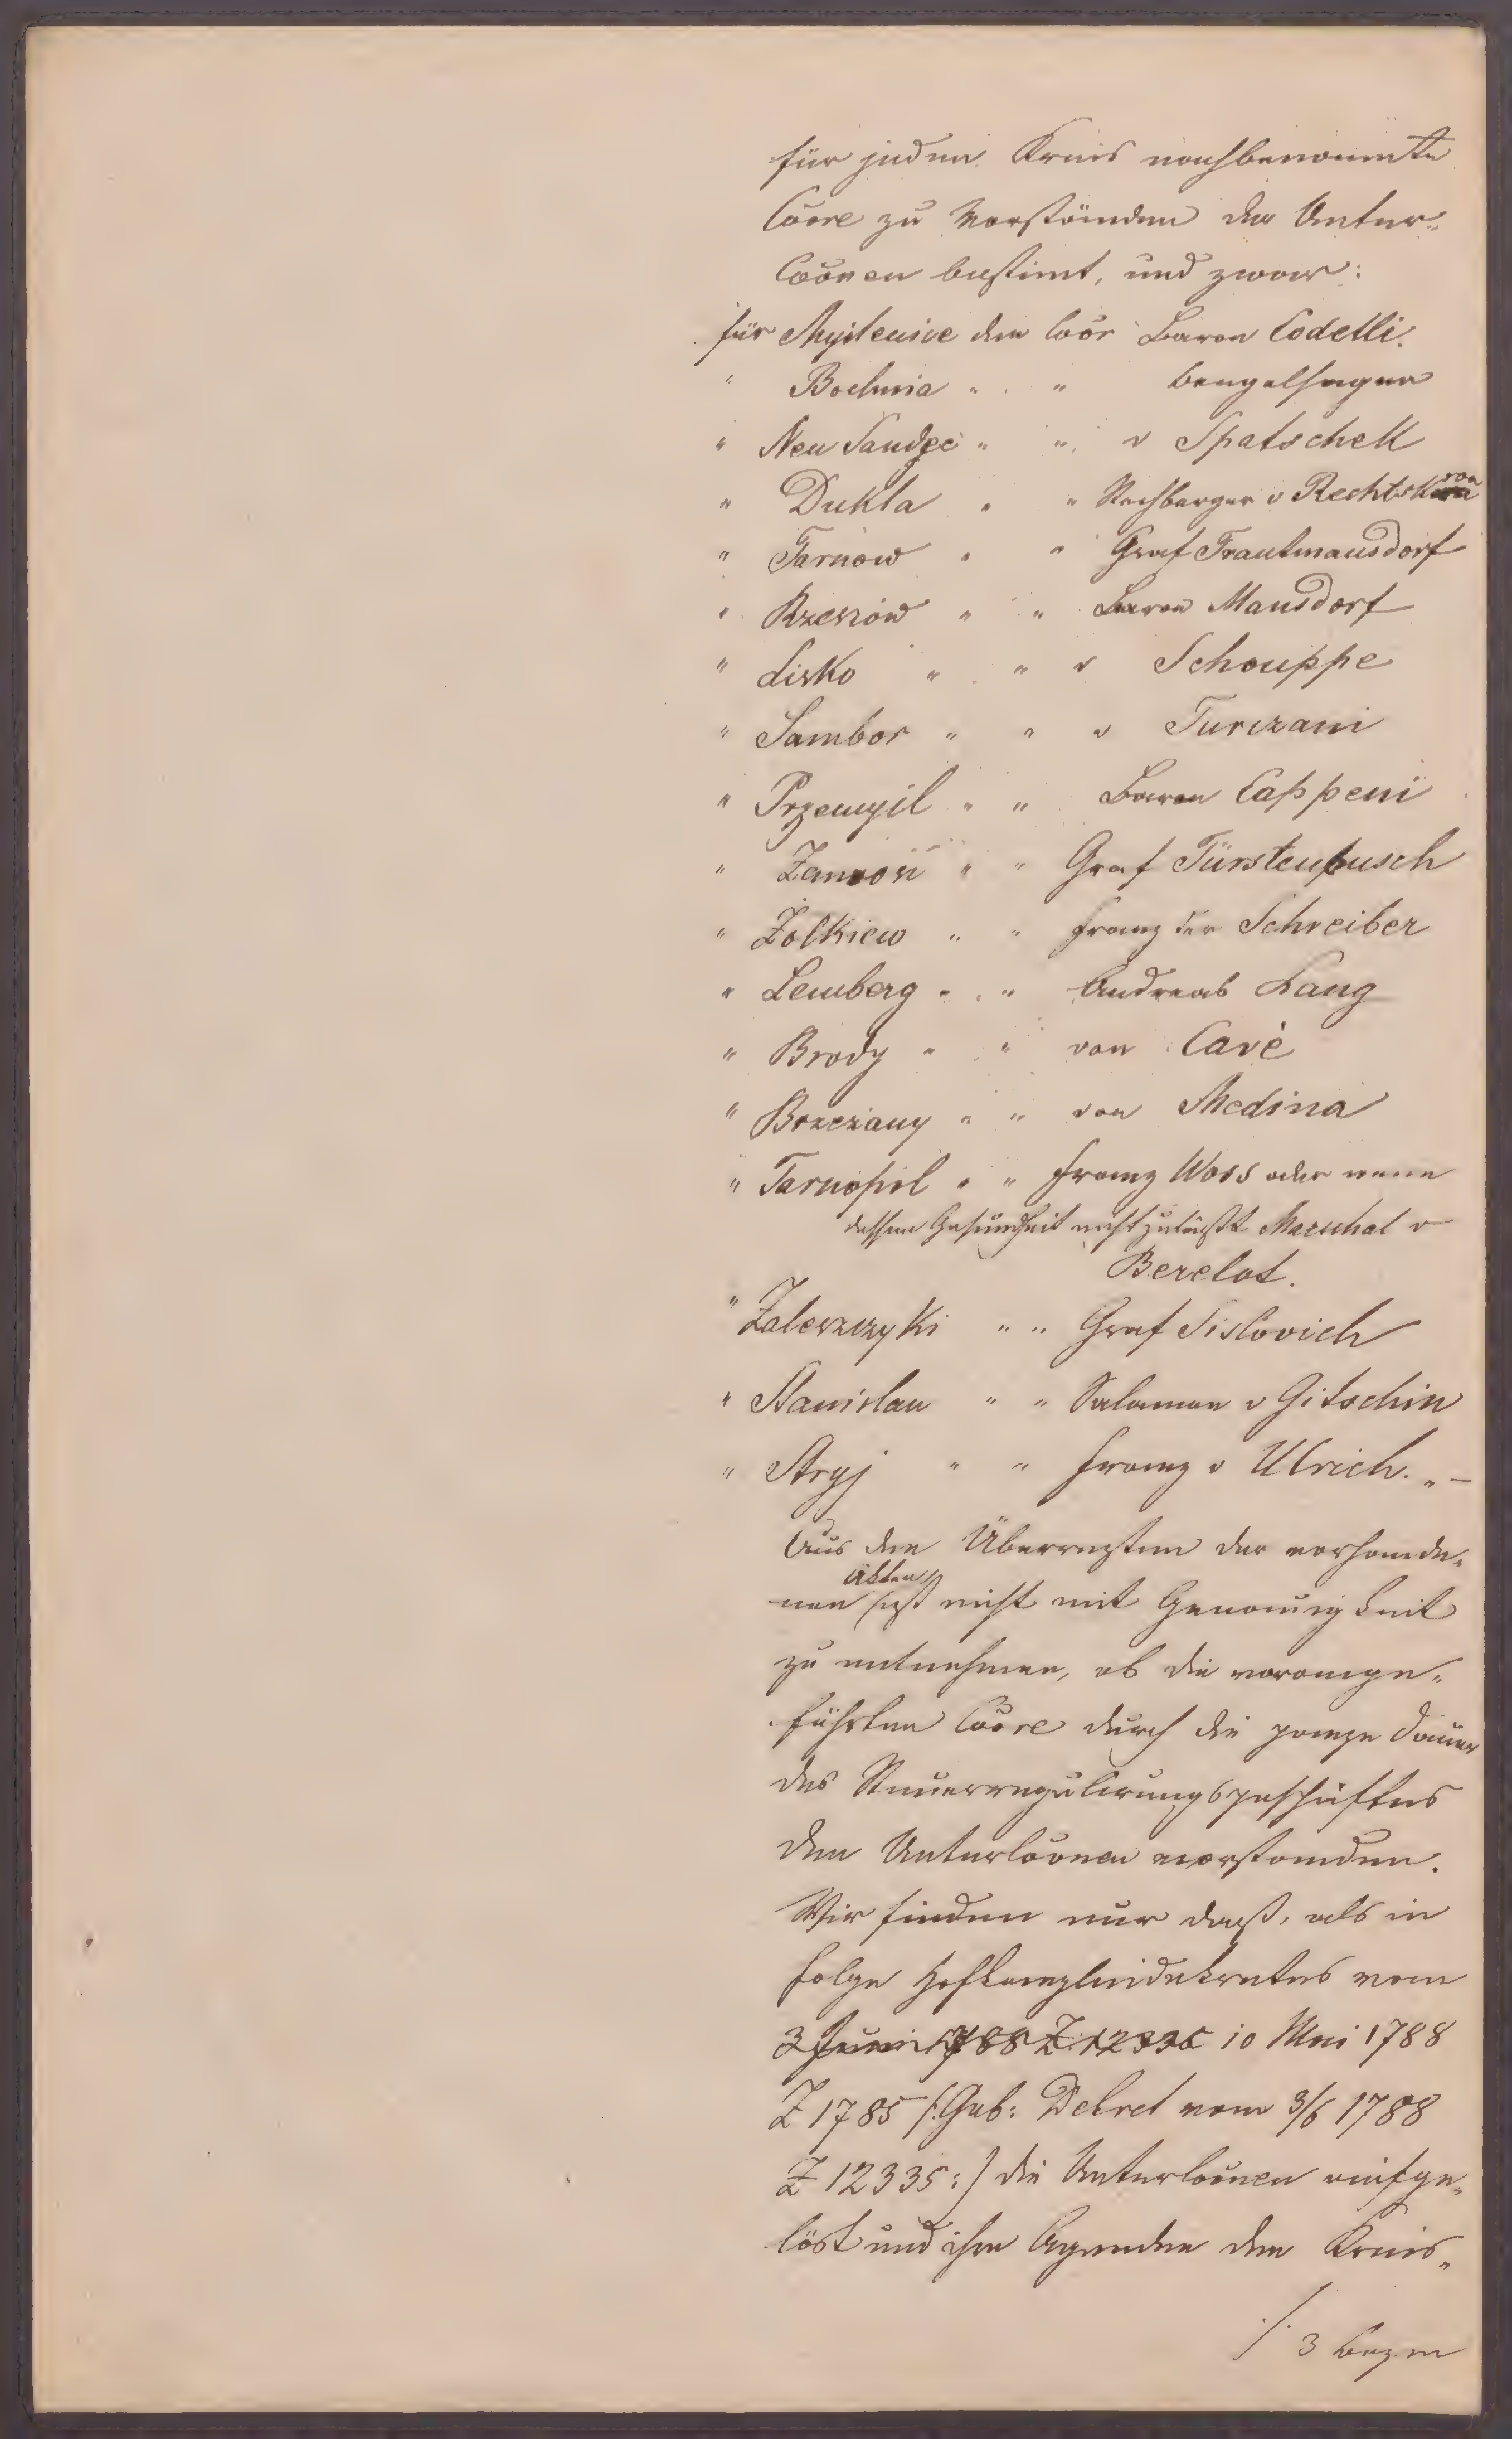 für jeden Kreis nachbenannte
Cõore zu Vorständen der Unter„
Cõonen bestimt, und zwar:
für Myslenice den Cõor Baron Codelli.
" Bochnia " " Bengelhagen
" Neu Sandec " " v Spatschek
" Dukla " " Rechberger v Rechtskron
" Tarnow " " Graf Trautmansdorf
" Rzeszów " " Baron Mansdorf
" Lisko " " v Schouppe
" Sambor " " v Turczani
" Przemyśl " " Baron Cappeni
" Zamość " " Graf Fürstenbusch
" Żolkiew " " Franz der Schreiber
" Lemberg " " Andreas Lang
" Brody " " von Cavè
" Brzeżany " " von Medina
" Tarnopol " " Franz Woss oder wenn
dessen Gesundheit nicht zuläßt Marschal v
Berelot.
" Zaleszczyki " " Graf Sislovich
" Stanislau " " Salamon v Gitschin
" Stryj " " Franz v Ulrich. „ –
Aus den Überresten der vorhande„
nen Akten läßt nicht mit Genauigkeit
zu entnehmen, ob die vorange„
führten Cõore durch die ganze Dauer
des Steuerregulirungsgeschäftes
den Untercõonen vorstanden.
Wir finden nur daß, als in
Folge Hofkanzleidekretes vom
3 Juni 1788 Z. 12335 10 Mai 1788
Z 1785 /: Gub: Dekret vom 3/6 1788
Z 12335 :/ die Untercõonen aufge„
löst und ihre Agenden den Kreis„
./. 3 Bogen